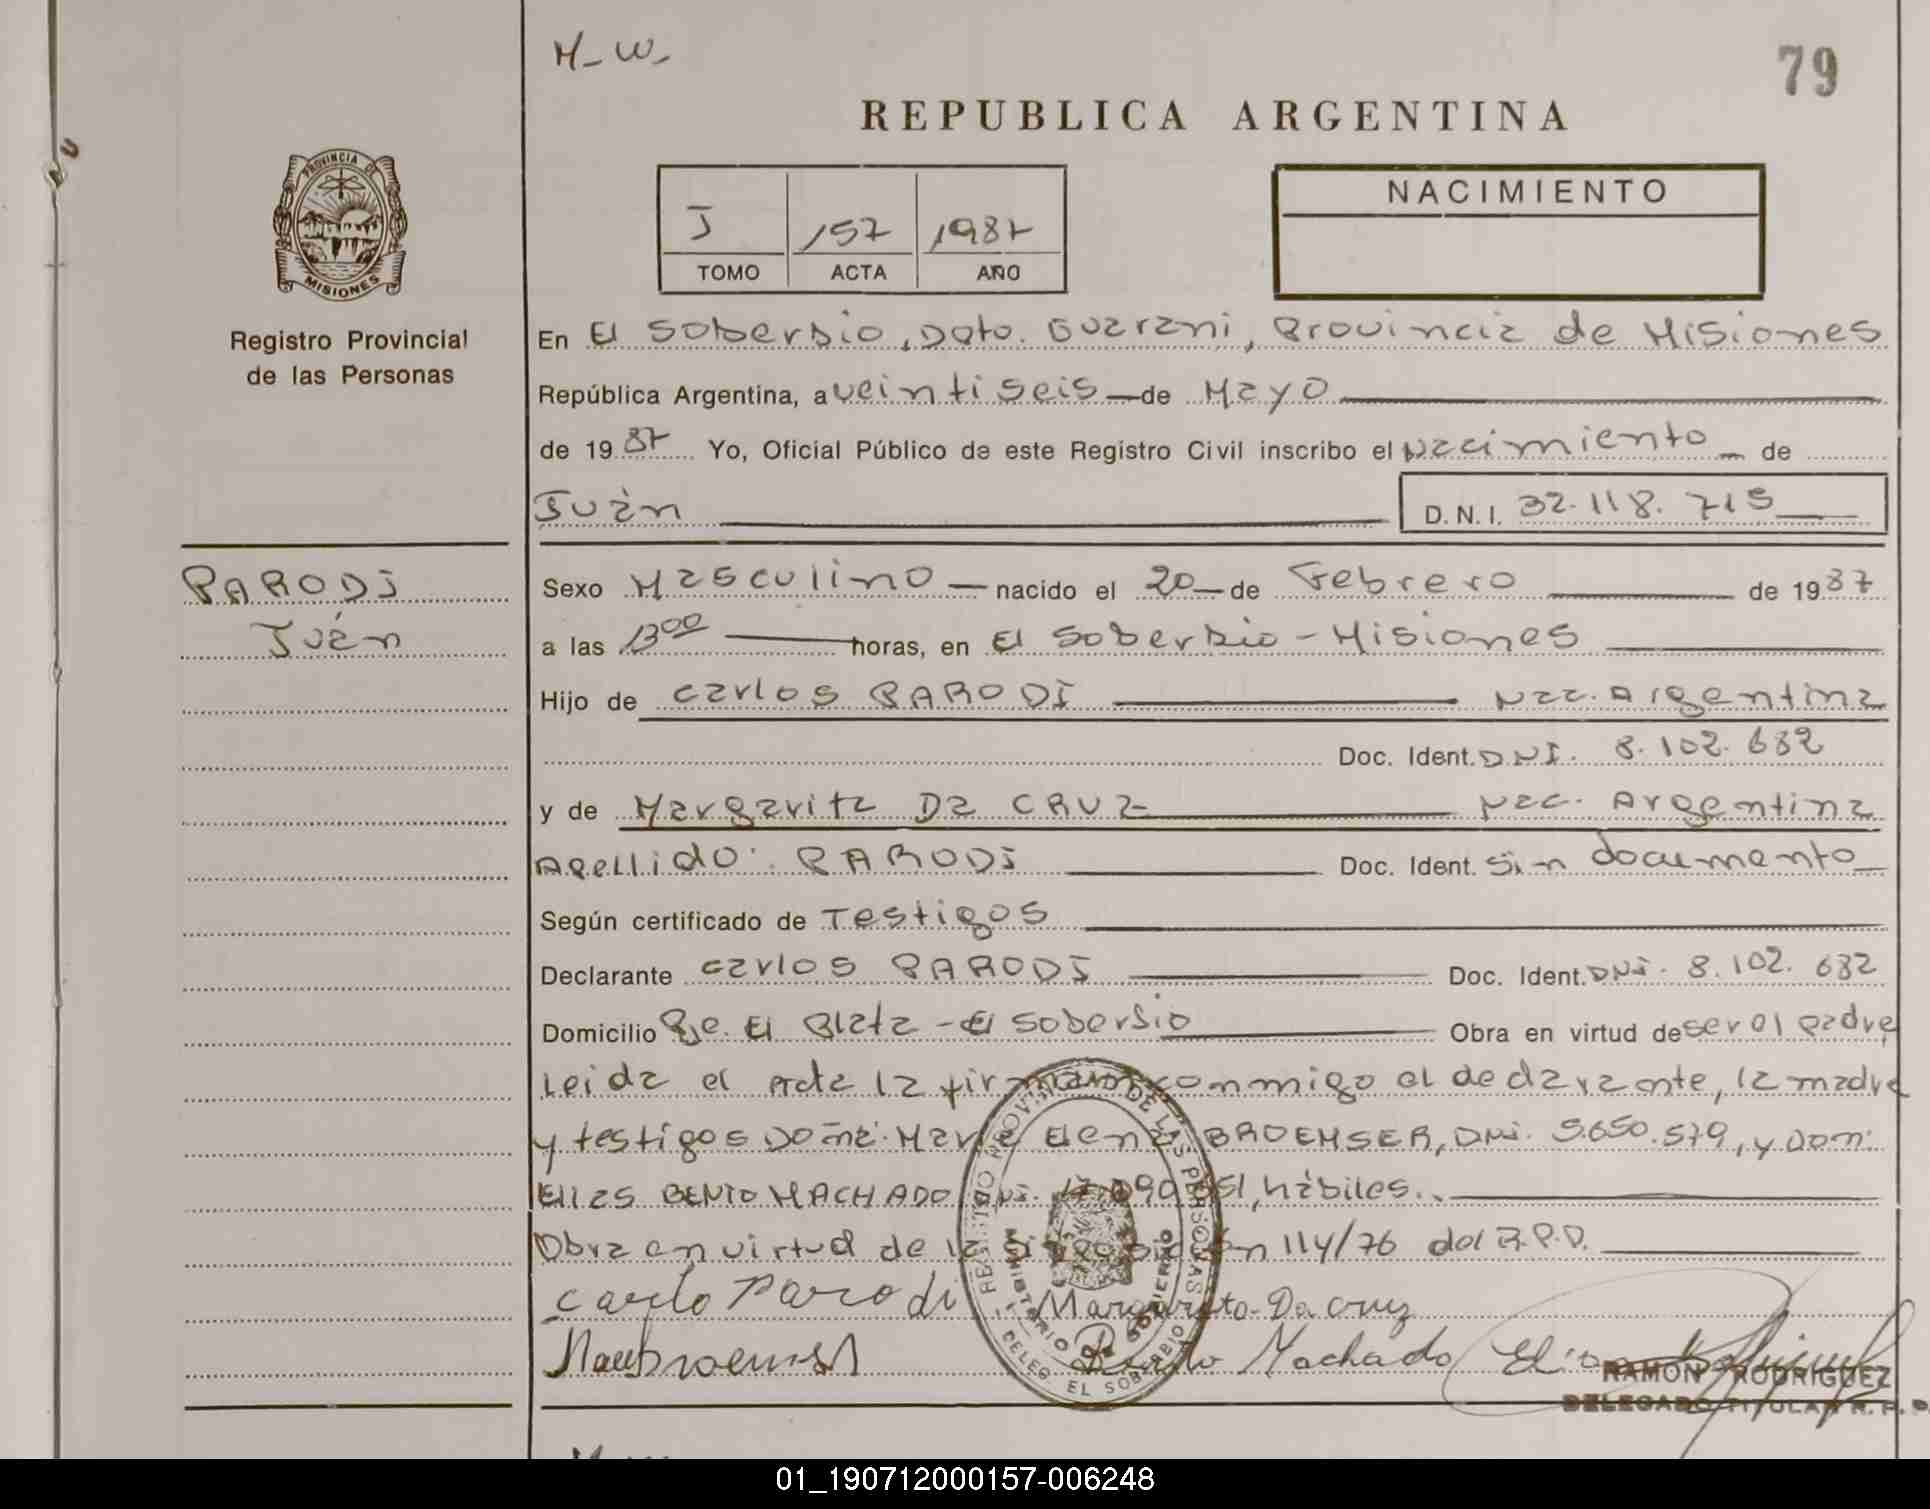 H_ W_
79
REPUBLICA ARGENTINA
PROVINCIA DE
MISIONES
Registro Provincial
de las Personas
I 157 1987
TOMO ACTA AÑO
NACIMIENTO
En El Soberbio, Dpto. Guarani, Provincia de Misiones
República Argentina, a veintiseis — de Mayo
de 19 87 Yo, Oficial Público de este Registro Civil inscribo el Nacimiento — de
Juán
D.N.I. 32.118.715
PARODI
Juán
Sexo Masculino — nacido el 20 — de Febrero de 19 87
a las 13 00 horas, en El Soberbio - Misiones
Hijo de Carlos PARODI Nac. Argentina
Doc. Ident. DNI. 8.102.682
y de Margarita Da CRUZ Nac. Argentina
Apellido: PARODI Doc. Ident. Sin documento
Según certificado de Testigos
Declarante Carlos PARODI Doc. Ident. DNI. 8.102.682
Domicilio Pje. El Plata - El Soberbio Obra en virtud de ser el padre,
Leida el Acta la firman conmigo el declarante, la madre
y testigos Doña: Maria Elena BROEMSER, DNI. 5.650.579, y Don:
Elias BENTO MACHADO DNI. hábiles.
Obra en virtud de la Disposición 114/76 del R.P.P.
REGISTRO PROVINCIAL DE LAS PERSONAS
MINISTERIO DE GOBIERNO
DELEG. EL SOBERBIO
Carlo Parodi Margarita Da Cruz
Machado Elia
RAMON RODRIGUEZ
DELEGADO TITULAR R. P. P.
01_190712000157-006248